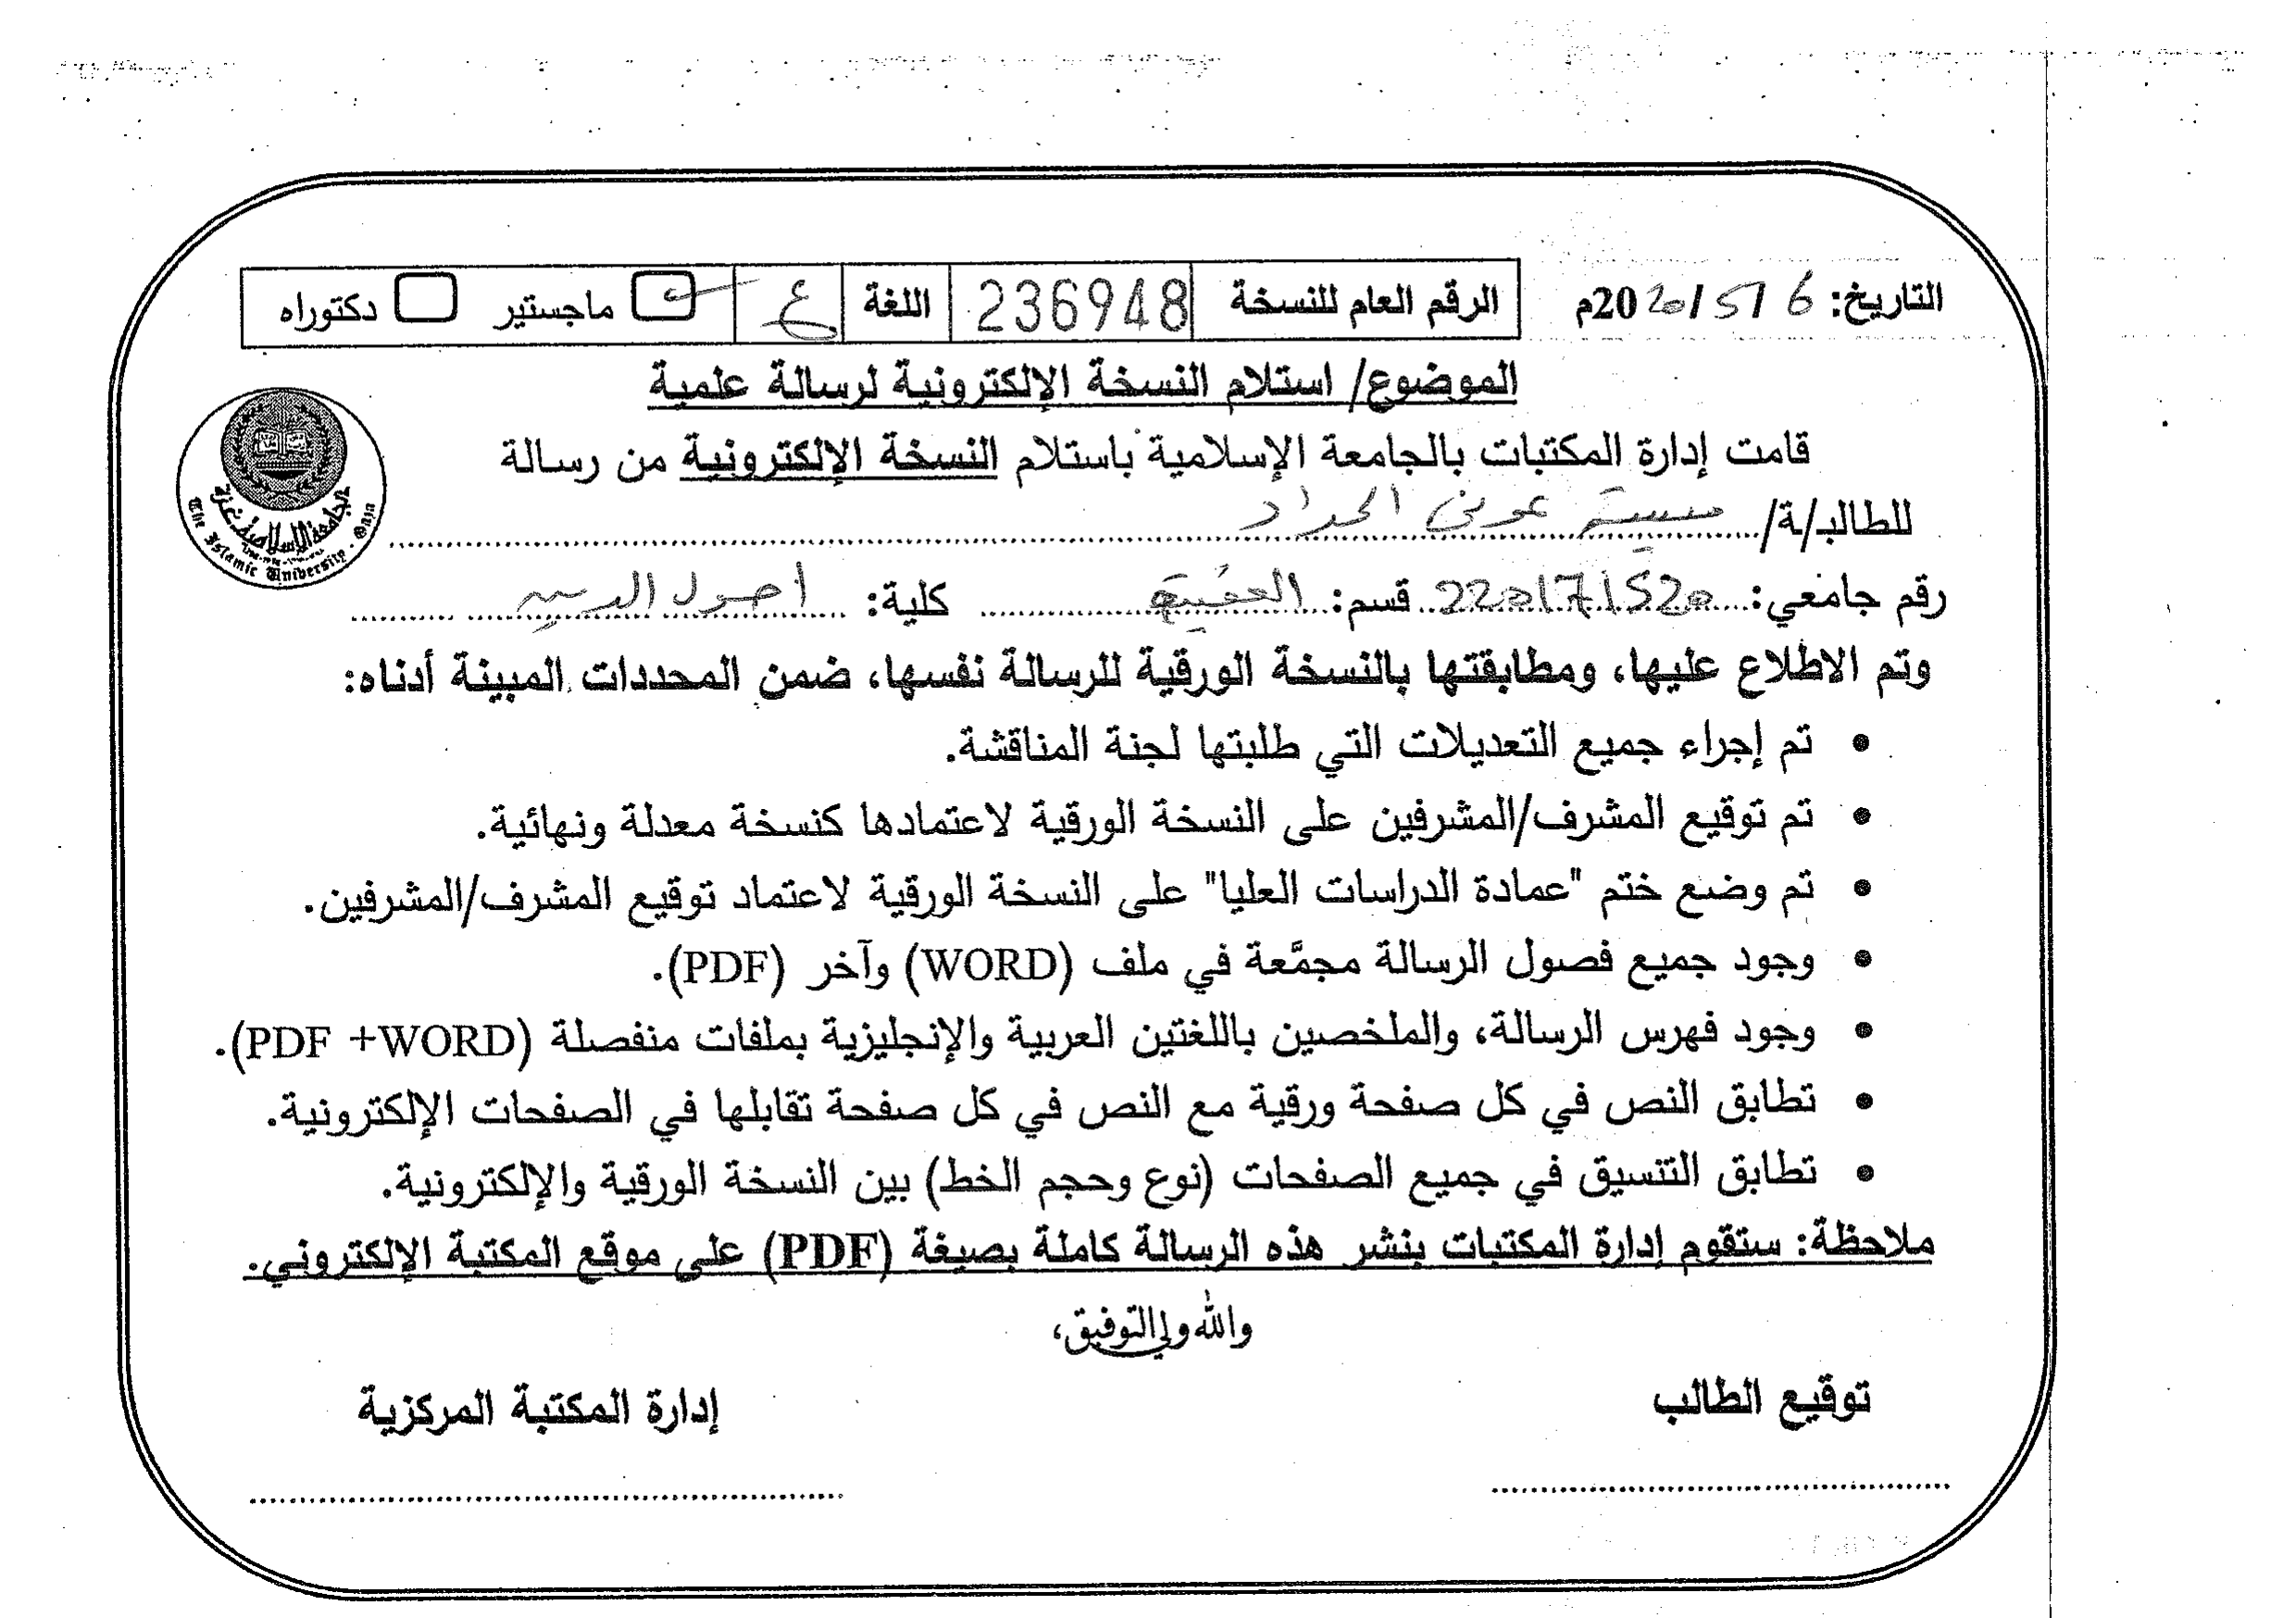 التاريخ: 6 / 5 / 2020م الرقم العام للنسخة 236948 اللغة ع ماجستير دكتوراه
الموضوع/ استلام النسخة الإلكترونية لرسالة علمية
قامت إدارة المكتبات بالجامعة الإسلامية باستلام النسخة الإلكترونية من رسالة
للطالب/ة/ عوني الحداد
رقم جامعي: 220171520 قسم: العقيدة كلية: أصول الدين
وتم الاطلاع عليها، ومطابقتها بالنسخة الورقية للرسالة نفسها، ضمن المحددات المبينة أدناه:
• تم إجراء جميع التعديلات التي طلبتها لجنة المناقشة.
• تم توقيع المشرف/المشرفين على النسخة الورقية لاعتمادها كنسخة معدلة ونهائية.
• تم وضع ختم "عمادة الدراسات العليا" على النسخة الورقية لاعتماد توقيع المشرف/المشرفين.
• وجود جميع فصول الرسالة مجمَّعة في ملف (WORD) وآخر (PDF).
• وجود فهرس الرسالة، والملخصين باللغتين العربية والإنجليزية بملفات منفصلة (PDF +WORD).
• تطابق النص في كل صفحة ورقية مع النص في كل صفحة تقابلها في الصفحات الإلكترونية.
• تطابق التنسيق في جميع الصفحات (نوع وحجم الخط) بين النسخة الورقية والإلكترونية.
ملاحظة: ستقوم إدارة المكتبات بنشر هذه الرسالة كاملة بصيغة (PDF) على موقع المكتبة الإلكتروني.
والله ولي التوفيق،
توقيع الطالب إدارة المكتبة المركزية
الجامعة الإسلامية غزة
The Islamic University - Gaza